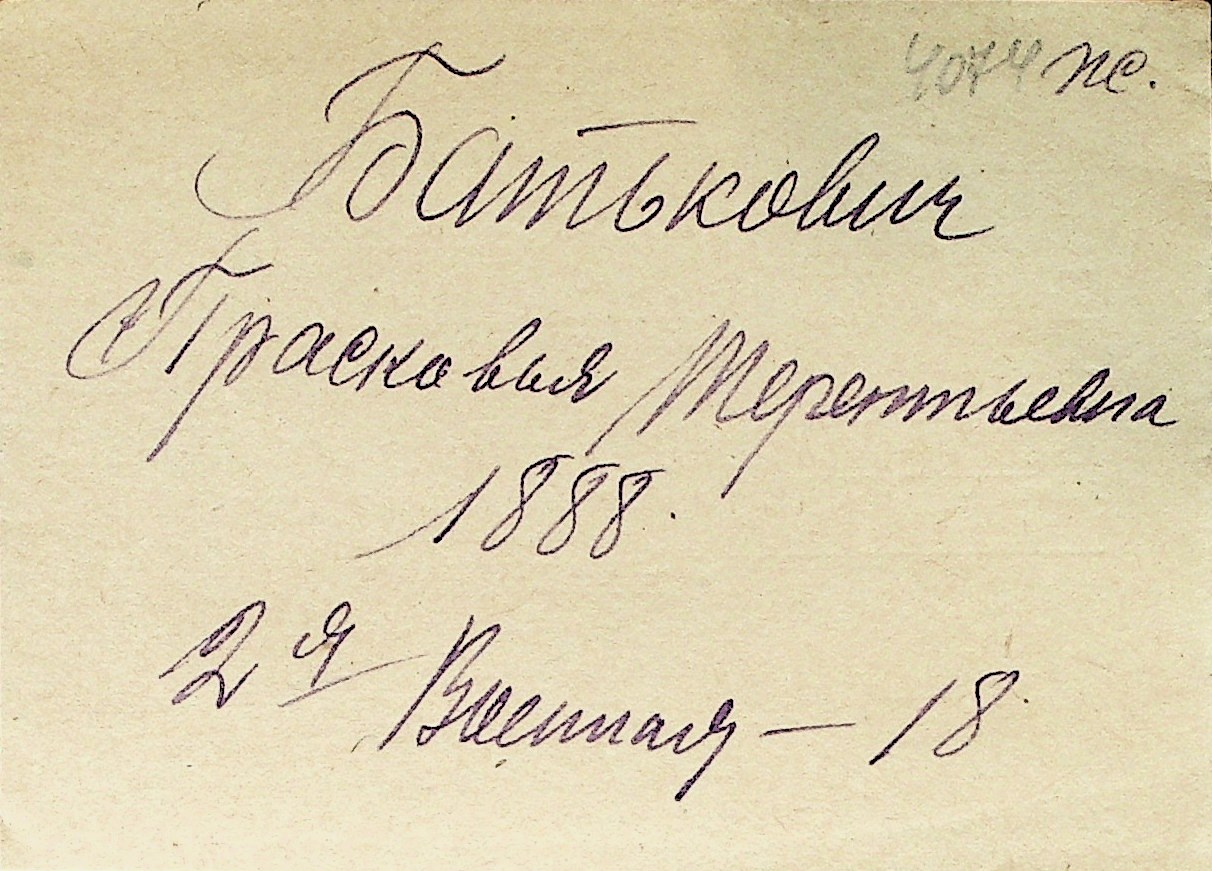 4074 пс.
Батькович
Прасковья Терентьевна
1888.
2я Военная — 18